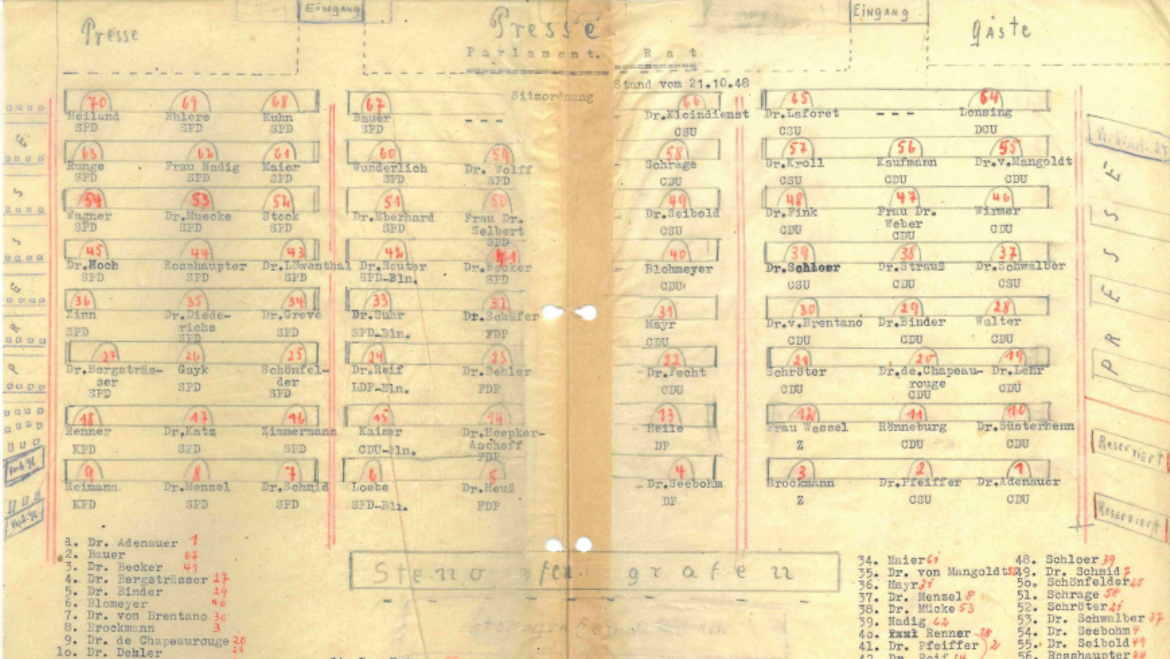 Eingang
Eingang
Presse
Presse
Gäste
Parlament. Rat
Stand vom 21.10.48
Sitzordnung
70 69 68 67 66 65 64
Heiland Ehlers Kuhn Bauer --- Dr.Kleindienst Dr.Laforet --- Lensing
SPD SPD SPD SPD CSU CSU DCU
63 62 61 60 59 58 57 56 55
Runge Frau Nadig Maier Wunderlich Dr. Wolff Schrage Dr.Kroll Kaufmann Dr.v.Mangoldt
SPD SPD SPD SPD SPD CDU CSU CDU CDU
54 53 52 51 50 49 48 47 46
Wagner Dr.Muecke Stock Dr.Eberhard Frau Dr. Selbert Dr.Seibold Dr.Fink Frau Dr. Weber Wirmer
SPD SPD SPD SPD SPD CSU CDU CDU CDU
45 44 43 42 41 40 39 38 37
Dr.Hoch Rosshaupter Dr.Löwenthal Dr.Reuter Dr.Becker Blohmeyer Dr.Schloer Dr.Strauß Dr.Schwalber
SPD SPD SPD SPD-Bln. SPD CDU CSU CDU CSU
36 35 34 33 31 30 29 28
Zinn Dr.Diede-richs Dr.Greve Dr.Suhr Dr.Schäfer Mayr Dr.v.Brentano Dr.Binder Walter
SPD SPD SPD SPD-Bln. FDP CDU CDU CDU CDU
27 26 25 24 23 22 21 20 19
Dr.Bergsträs-ser Gayk Schönfel-der Dr.Reif Dr.Dehler Dr.Fecht Schröter Dr.de.Chapeau-rouge Dr.Lehr
SPD SPD SPD LDP-Bln. FDP CDU CDU CDU CDU
18 17 16 15 14 13 12 11 10
Renner Dr.Katz Zimmermann Kaiser Dr.Hoepker-Aschoff Heile Frau Wessel Rönneburg Dr.Süsterhenn
KPD SPD SPD CDU-Bln. FDP DP Z CDU CDU
9 8 7 6 5 4 3 2 1
Reimann Dr.Menzel Dr.Schmid Loebe Dr.Heuß Dr.Seebohm Brockmann Dr.Pfeiffer Dr.Adenauer
KPD SPD SPD SPD-Bln. FDP DP Z CSU CDU
PRESSE
PRESSE
Reserviert
Reserviert
Stenografen
1. Dr. Adenauer 1
2. Bauer 67
3. Dr. Becker 41
4. Dr. Bergsträsser 27
5. Dr. Binder 29
6. Blomeyer 40
7. Dr. von Brentano 30
8. Brockmann 3
9. Dr. de Chapeaurouge 20
10. Dr. Dehler 23
34. Maier 61
35. Dr. von Mangoldt 55
36. Mayr 31
37. Dr. Menzel 8
38. Dr. Mücke 53
39. Nadig 62
40. Renner
41. Dr. Pfeiffer 2
48. Schloer 39
49. Dr. Schmid 7
50. Schönfelder
51. Schrage 58
52. Schröter 21
53. Dr. Schwalber 37
54. Dr. Seebohm 4
55. Dr. Seibold 49
56. Rosshaupter 44